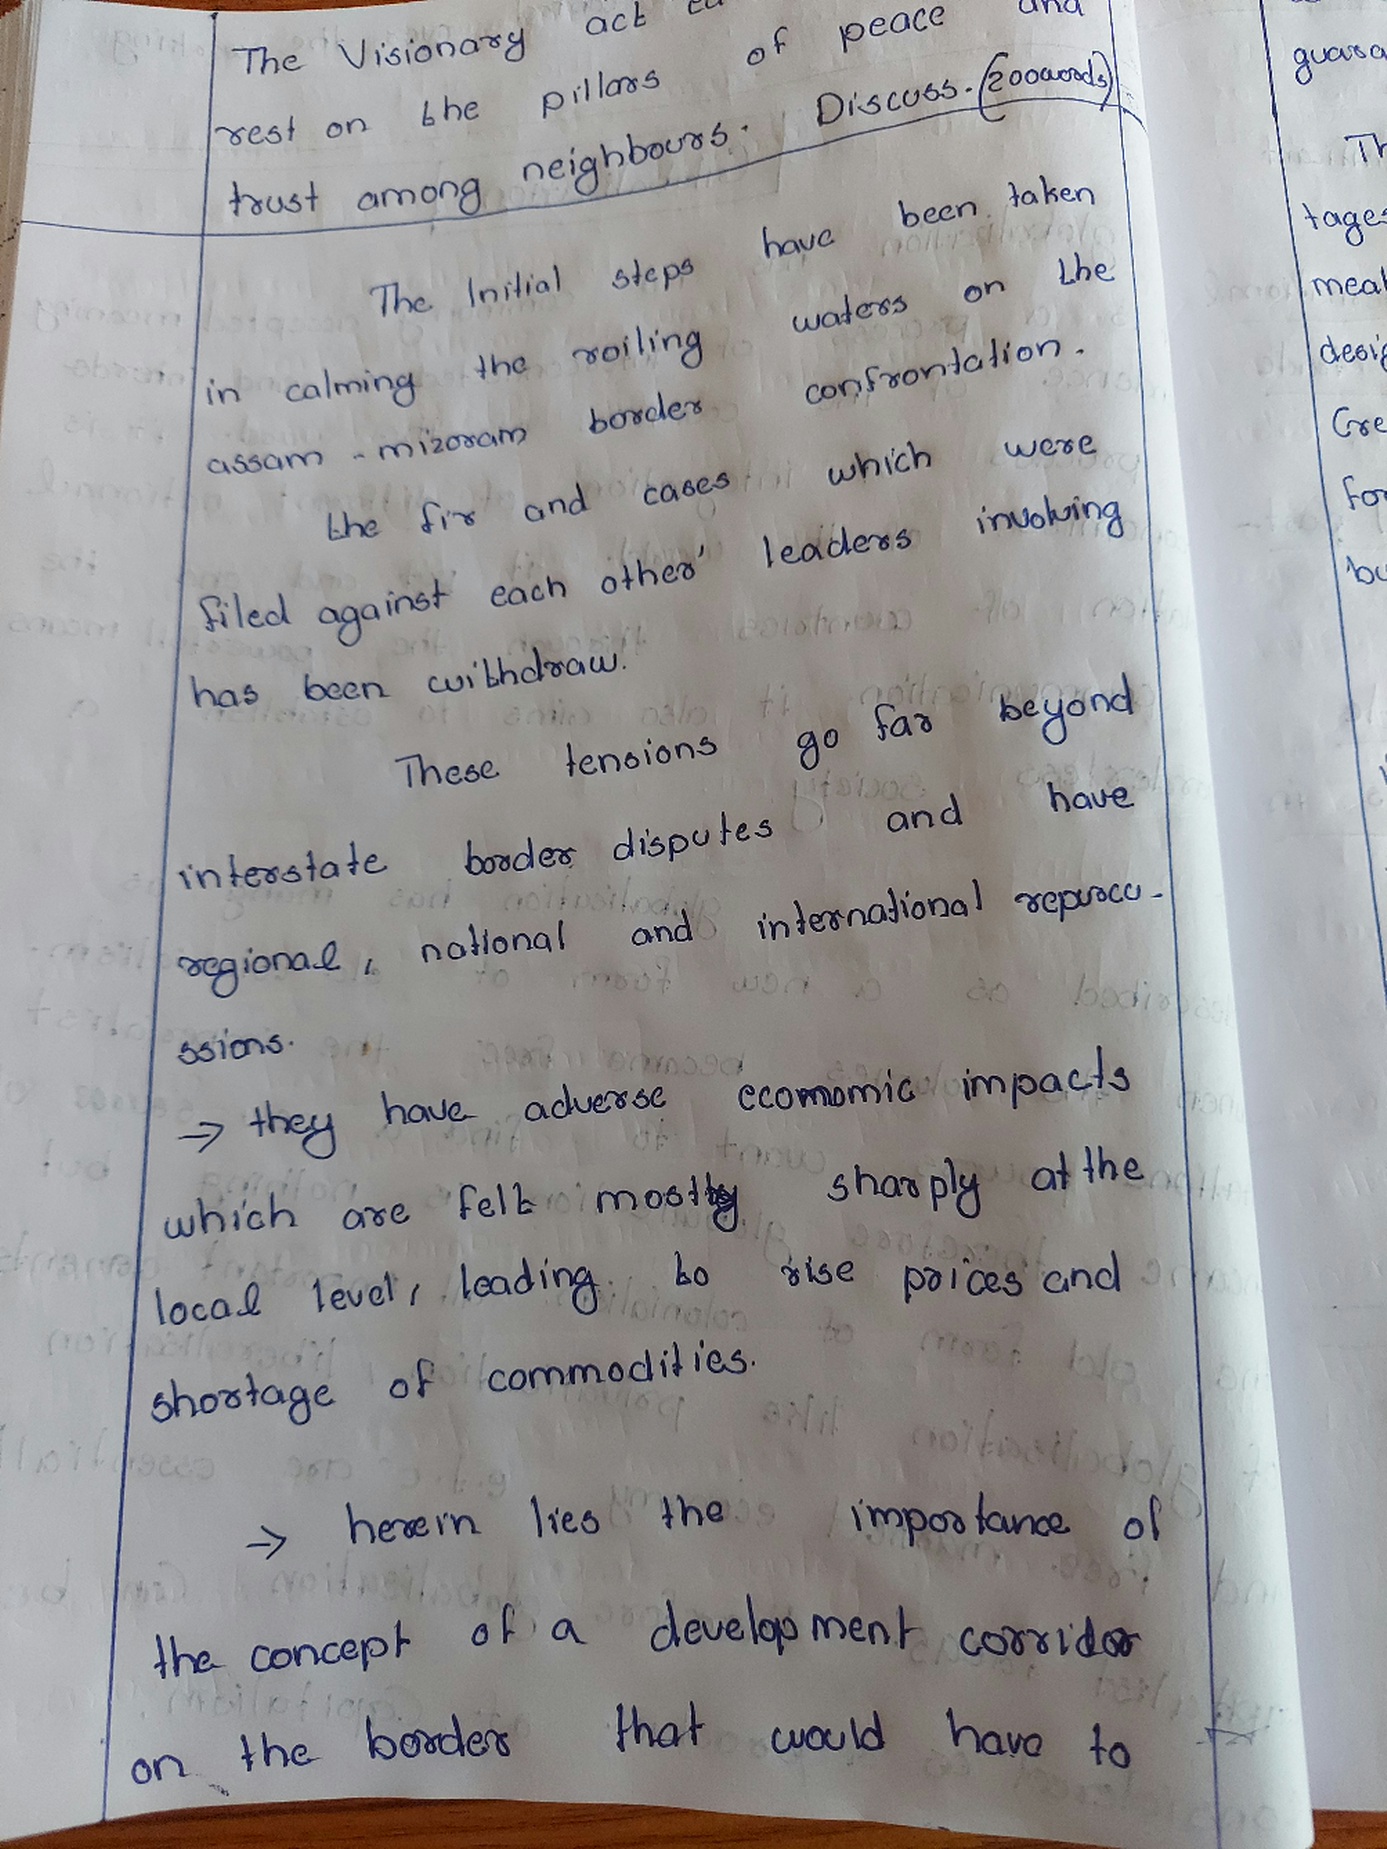 The Visionary act
rest on the pillars of peace and
trust among neighbours. Discuss. (200words)
The Initial steps have been taken
in calming the roiling waters on the
assam - mizoram border confrontation.
the fir and cases which were
filed against each other' leaders involving
has been withdraw.
These tensions go far beyond
interstate border disputes and have
regional, national and international repurcu-
ssions.
→ they have adverse ecomomic impacts
which are felt mostly sharply at the
local level, leading to rise prices and
shortage of commodities.
→ herein lies the importance of
the concept of a development corridor
on the border that would have to